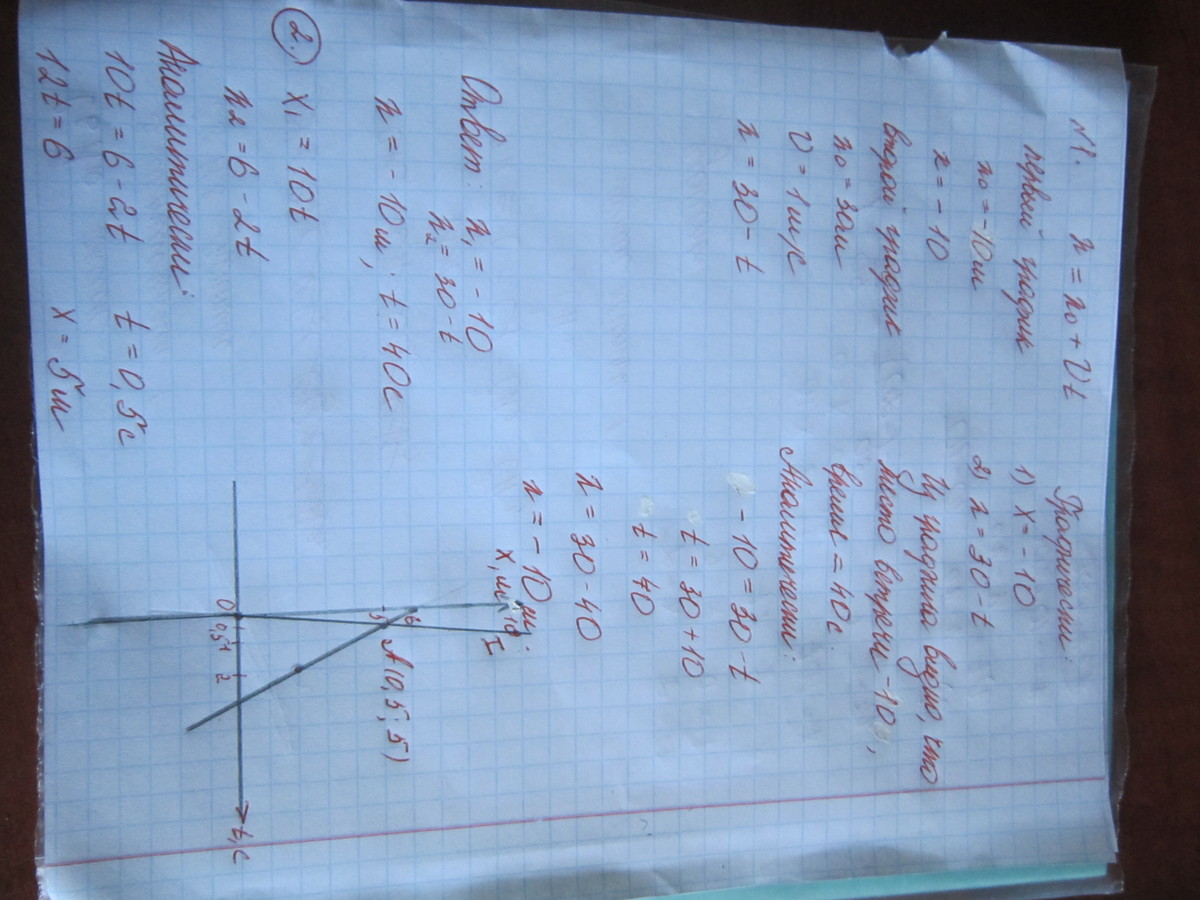 N1. x = x₀ + Vt
первый график
x₀ = -10м
x = -10
второй график
x₀ = 30м
V = 1 м/с
x = 30 - t
Графически:
1) x = -10
2) x = 30 - t
Из графика видно, что
место встречи -10м,
время = 40с
Аналитически:
-10 = 30 - t
t = 30 + 10
t = 40
x = 30 - 40
x = -10м.
Ответ: x₁ = -10
x₂ = 30 - t
x = -10м, t = 40с
2. x₁ = 10t
x₂ = 6 - 2t
Аналитически:
10t = 6 - 2t t = 0,5с
12t = 6 x = 5м
X, м
10
I
6
5
A(0,5; 5)
0
0,5
1
2
t, c